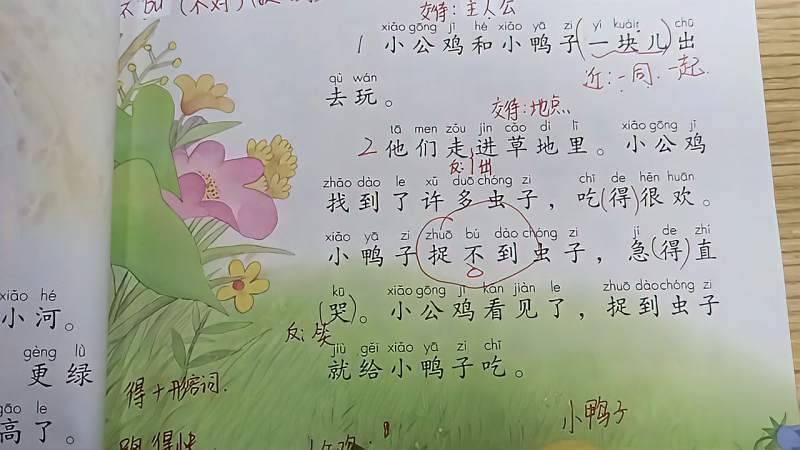 不 bu (不对)
交待：主人公
xiǎo gōng jī hé xiǎo yā zi yí kuàir chū
1 小公鸡和小鸭子(一块儿)出
近：一同. 一起.
qù wán
去玩。
交待：地点
tā men zǒu jìn cǎo dì lǐ xiǎo gōng jī
2 他们走进草地里。小公鸡
反：出
zhǎo dào le xǔ duō chóng zi chī de hěn huān
找到了许多虫子，吃(得)很欢。
xiǎo yā zi zhuō bú dào chóng zi jí de zhí
小鸭子捉不到虫子，急(得)直
kū xiǎo gōng jī kàn jiàn le zhuō dào chóng zi
(哭)。小公鸡看见了，捉到虫子
反：笑
jiù gěi xiǎo yā zi chī
就给小鸭子吃。
得+形容词.
小鸭子
xiǎo hé
小河。
gèng lǜ
更绿
gāo le
高了。